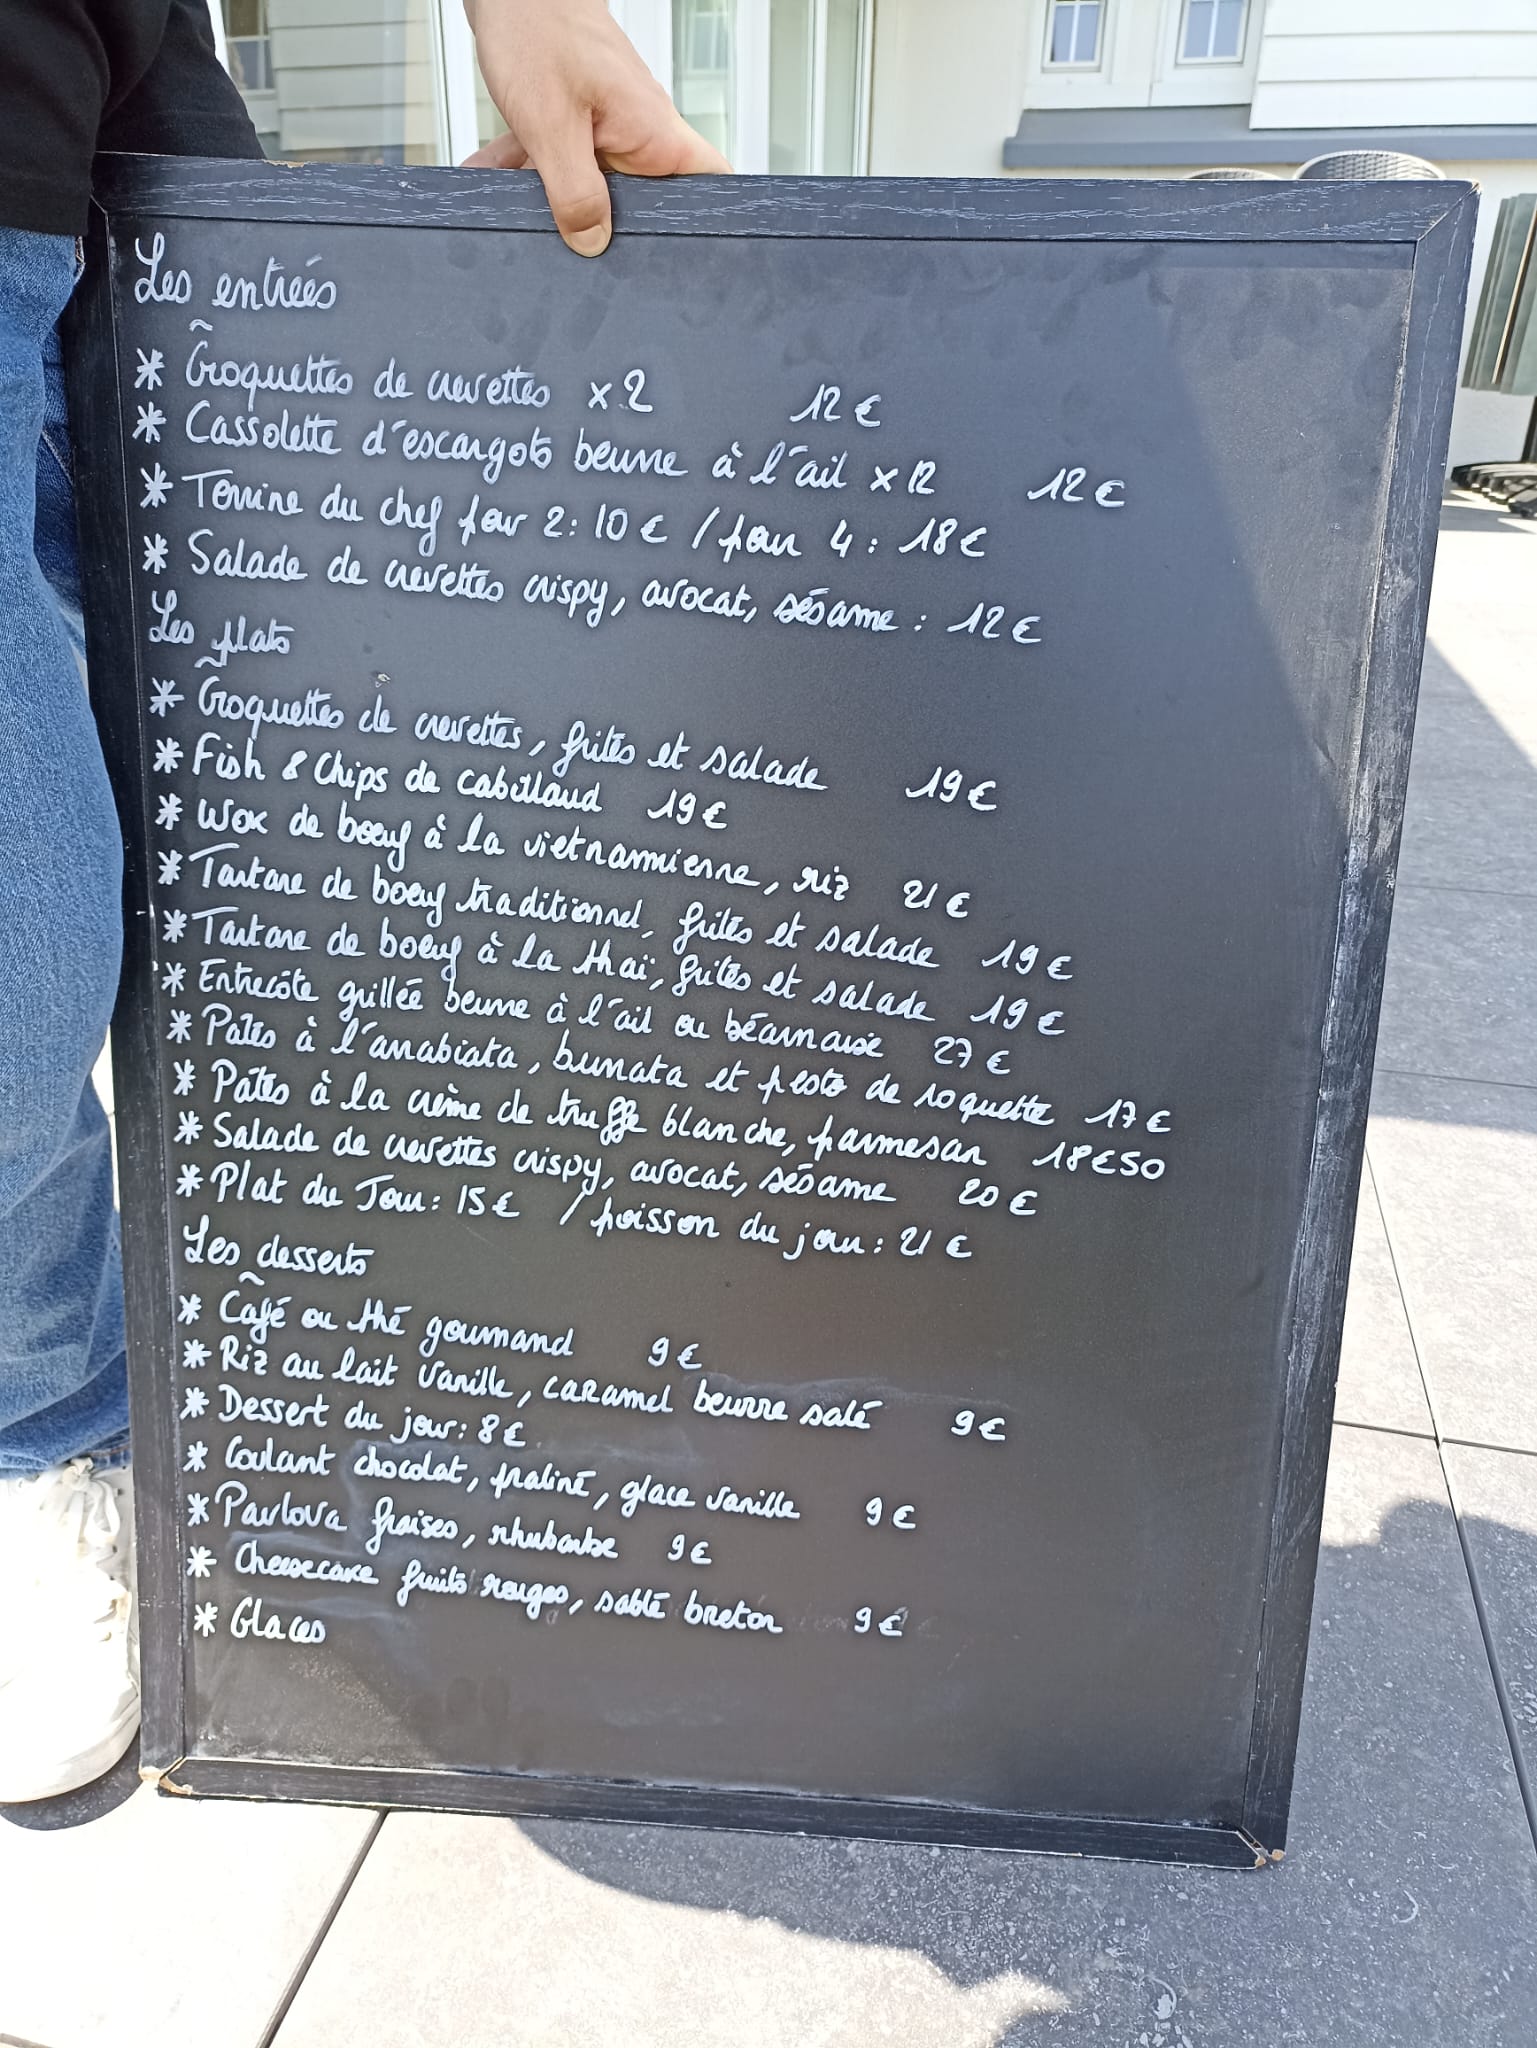 Les entrées
* Croquettes de crevettes x2 12€
* Cassolette d'escargots beurre à l'ail x12 12€
* Terrine du chef pour 2: 10€ / pour 4: 18€
* Salade de crevettes crispy, avocat, sésame : 12€
Les plats
* Croquettes de crevettes, frites et salade 19€
* Fish & Chips de cabillaud 19€
* Wok de boeuf à la vietnammienne, riz 21€
* Tartare de boeuf traditionnel, frites et salade 19€
* Tartare de boeuf à la thaï, frites et salade 19€
* Entrecôte grillée beurre à l'ail ou béarnaise 27€
* Pâtes à l'arrabiata, burrata et pesto de roquette 17€
* Pâtes à la crème de truffe blanche, parmesan 18€50
* Salade de crevettes crispy, avocat, sésame 20€
* Plat du Jour: 15€ / poisson du jour: 21€
Les desserts
* Café ou thé gourmand 9€
* Riz au lait vanille, caramel beurre salé 9€
* Dessert du jour: 8€
* Coulant chocolat, praliné, glace vanille 9€
* Pavlova fraises, rhubarbe 9€
* Cheesecake fruits rouges, sablé breton 9€
* Glaces